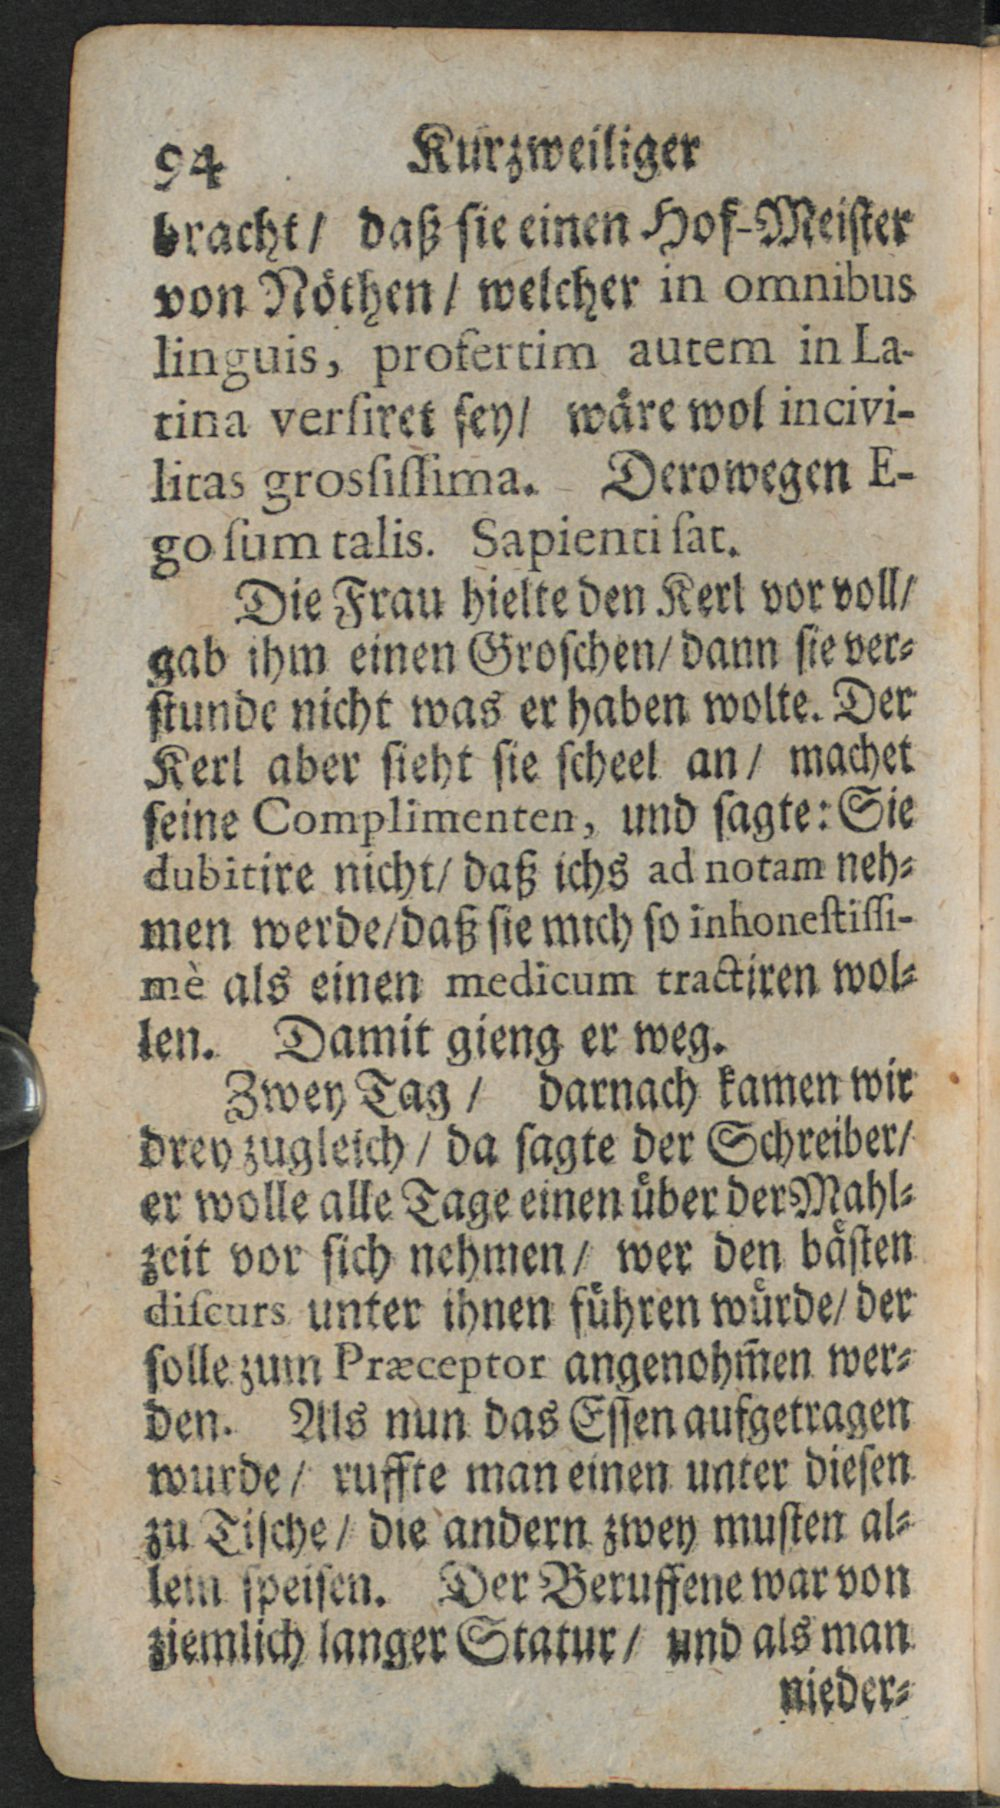 94 Kurzweiliger
bracht / daß ſie einen Hof-Meiſter
von Nöthen / welcher in omnibus
linguis, profertim autem in La-
tina verſiret ſey / wäre wol incivi-
litas grosſisſima. Derowegen E-
go ſum talis. Sapienti ſat.
Die Frau hielte den Kerl vor voll /
gab ihm einen Groſchen / dann ſie ver-
ſtunde nicht was er haben wolte. Der
Kerl aber ſieht ſie ſcheel an / machet
ſeine Complimenten, und ſagte: Sie
dubitire nicht / daß ichs ad notam neh-
men werde / daß ſie mich ſo inhoneſtisſi-
mè als einen medicum tractiren wol-
len. Damit gieng er weg.
Zwey Tag / darnach kamen wir
drey zugleich / da ſagte der Schreiber /
er wolle alle Tage einen über der Mahl-
zeit vor ſich nehmen / wer den bäſten
diſcurs unter ihnen führen würde / der
ſolle zum Præceptor angenohm̃en wer-
den. Als nun das Eſſen aufgetragen
wurde / ruffte man einen unter dieſen
zu Tiſche / die andern zwey muſten al-
lein ſpeiſen. Der Beruffene war von
ziemlich langer Statur / und als man
nieder-